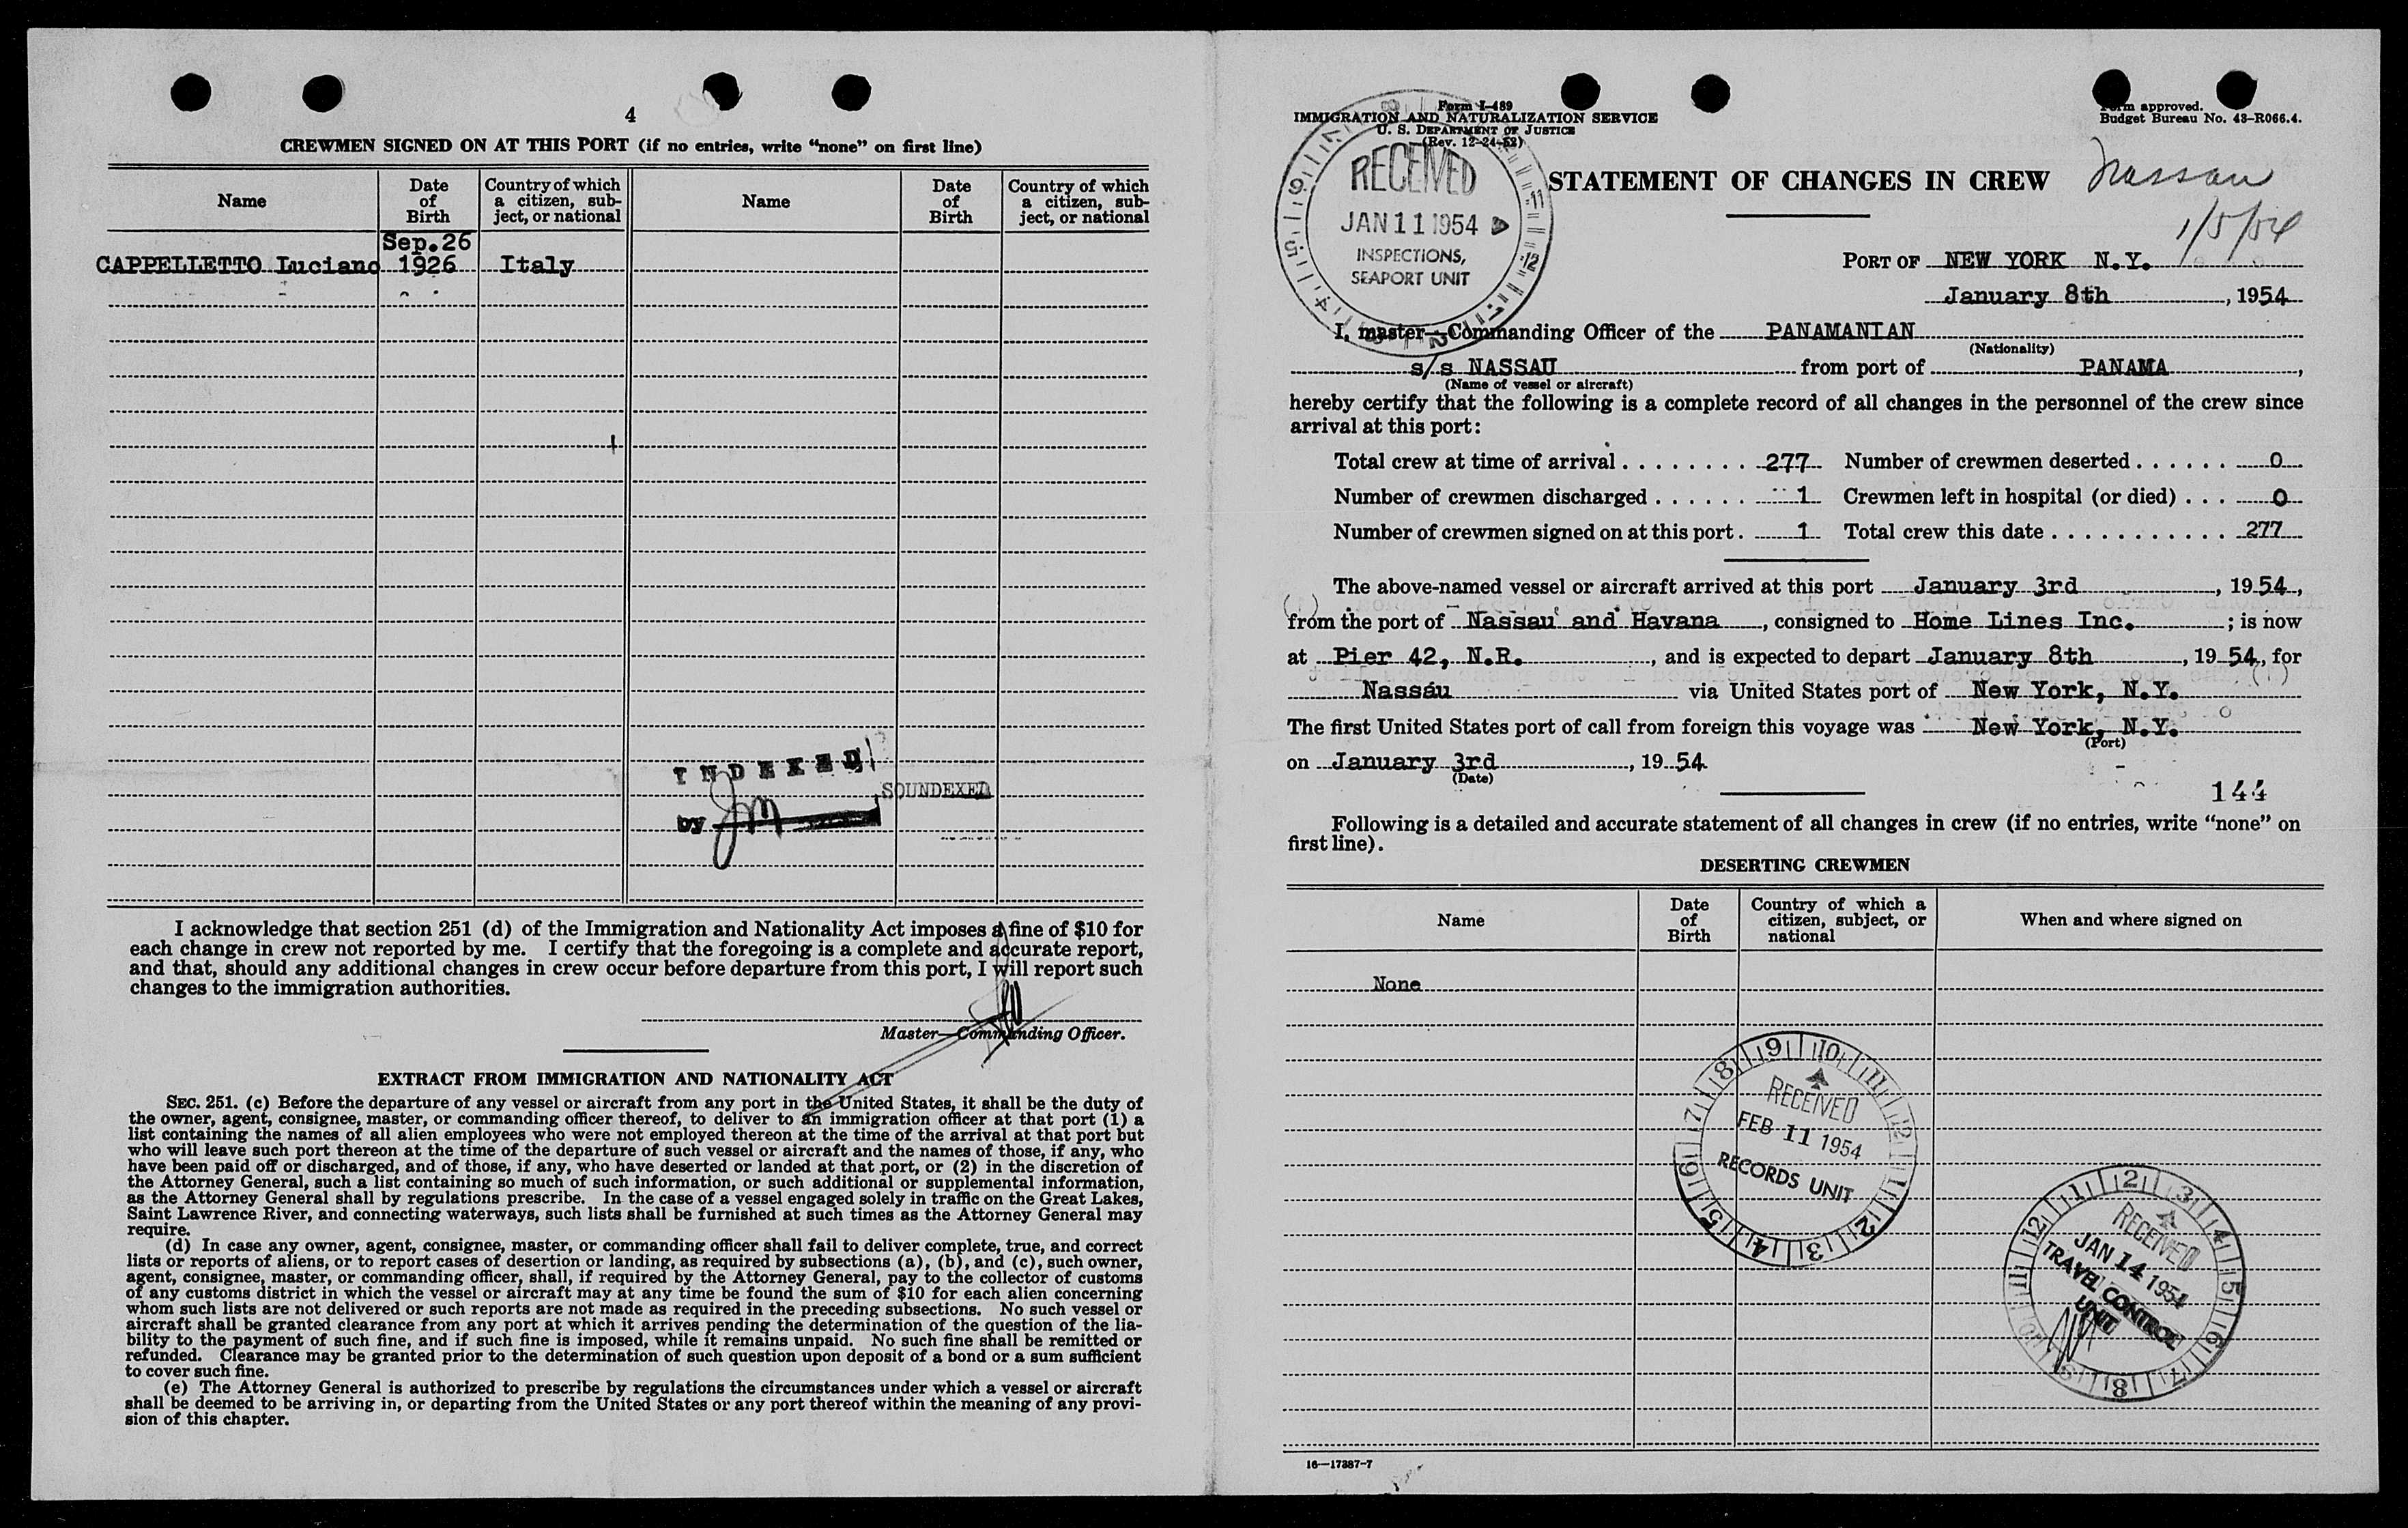 4
CREWMEN SIGNED ON AT THIS PORT (if no entries, write “none” on first line)
Name
Date of Birth
Country of which a citizen, subject, or national
Name
Date of Birth
Country of which a citizen, subject, or national
CAPPELLETTO Luciano Sep. 26 1926 Italy
INDEXED
SOUNDEXED
by JM
I acknowledge that section 251 (d) of the Immigration and Nationality Act imposes a fine of $10 for
each change in crew not reported by me. I certify that the foregoing is a complete and accurate report,
and that, should any additional changes in crew occur before departure from this port, I will report such
changes to the immigration authorities.
Master—Commanding Officer.
EXTRACT FROM IMMIGRATION AND NATIONALITY ACT
SEC. 251. (c) Before the departure of any vessel or aircraft from any port in the United States, it shall be the duty of
the owner, agent, consignee, master, or commanding officer thereof, to deliver to an immigration officer at that port (1) a
list containing the names of all alien employees who were not employed thereon at the time of the arrival at that port but
who will leave such port thereon at the time of the departure of such vessel or aircraft and the names of those, if any, who
have been paid off or discharged, and of those, if any, who have deserted or landed at that port, or (2) in the discretion of
the Attorney General, such a list containing so much of such information, or such additional or supplemental information,
as the Attorney General shall by regulations prescribe. In the case of a vessel engaged solely in traffic on the Great Lakes,
Saint Lawrence River, and connecting waterways, such lists shall be furnished at such times as the Attorney General may
require.
(d) In case any owner, agent, consignee, master, or commanding officer shall fail to deliver complete, true, and correct
lists or reports of aliens, or to report cases of desertion or landing, as required by subsections (a), (b), and (c), such owner,
agent, consignee, master, or commanding officer, shall, if required by the Attorney General, pay to the collector of customs
of any customs district in which the vessel or aircraft may at any time be found the sum of $10 for each alien concerning
whom such lists are not delivered or such reports are not made as required in the preceding subsections. No such vessel or
aircraft shall be granted clearance from any port at which it arrives pending the determination of the question of the lia-
bility to the payment of such fine, and if such fine is imposed, while it remains unpaid. No such fine shall be remitted or
refunded. Clearance may be granted prior to the determination of such question upon deposit of a bond or a sum sufficient
to cover such fine.
(e) The Attorney General is authorized to prescribe by regulations the circumstances under which a vessel or aircraft
shall be deemed to be arriving in, or departing from the United States or any port thereof within the meaning of any provi-
sion of this chapter.
Form I-489
IMMIGRATION AND NATURALIZATION SERVICE
U. S. DEPARTMENT OF JUSTICE
(Rev. 12-24-52)
Form approved.
Budget Bureau No. 43-R066.4.
RECEIVED
JAN 11 1954
INSPECTIONS,
SEAPORT UNIT
STATEMENT OF CHANGES IN CREW
Nassau
1/5/54
PORT OF NEW YORK N.Y.
January 8th, 1954
I, master—Commanding Officer of the PANAMANIAN
(Nationality)
s/s NASSAU from port of PANAMA,
(Name of vessel or aircraft)
hereby certify that the following is a complete record of all changes in the personnel of the crew since
arrival at this port:
Total crew at time of arrival . . . . . . . . 277 Number of crewmen deserted . . . . . . 0
Number of crewmen discharged . . . . . . 1 Crewmen left in hospital (or died) . . . 0
Number of crewmen signed on at this port . 1 Total crew this date . . . . . . . . . . . . 277
The above-named vessel or aircraft arrived at this port January 3rd, 1954,
from the port of Nassau and Havana, consigned to Home Lines Inc.; is now
at Pier 42, N.R., and is expected to depart January 8th, 1954, for
Nassau via United States port of New York, N.Y.
The first United States port of call from foreign this voyage was New York, N.Y.
(Port)
on January 3rd, 1954
(Date)
144
Following is a detailed and accurate statement of all changes in crew (if no entries, write “none” on
first line).
DESERTING CREWMEN
Name
Date of Birth
Country of which a citizen, subject, or national
When and where signed on
None
RECEIVED
FEB 11 1954
RECORDS UNIT
RECEIVED
JAN 14 1954
TRAVEL CONTROL
UNIT
16—17387-7